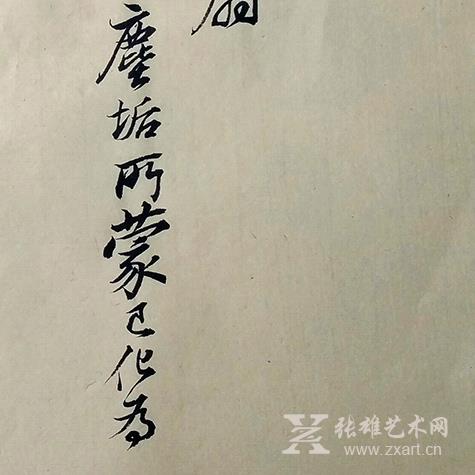 塵垢所蒙已化為
张雄艺术网
www.zxart.cn